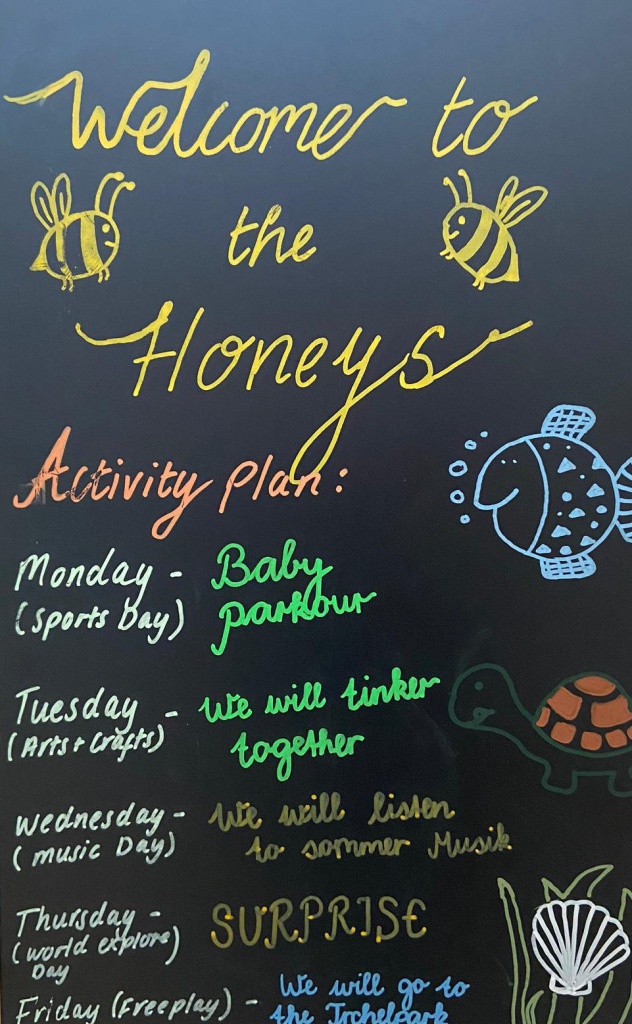 Welcome to
the
Honeys
Activity plan:
Monday - Baby
(Sports Day) parkour
Tuesday - We will tinker
(Arts + Crafts) together
Wednesday - We will listen
(music Day) to sommer Musik
Thursday - SURPRISE
(world explore)
Day
Friday (Freeplay) - We will go to
the Irchelpark